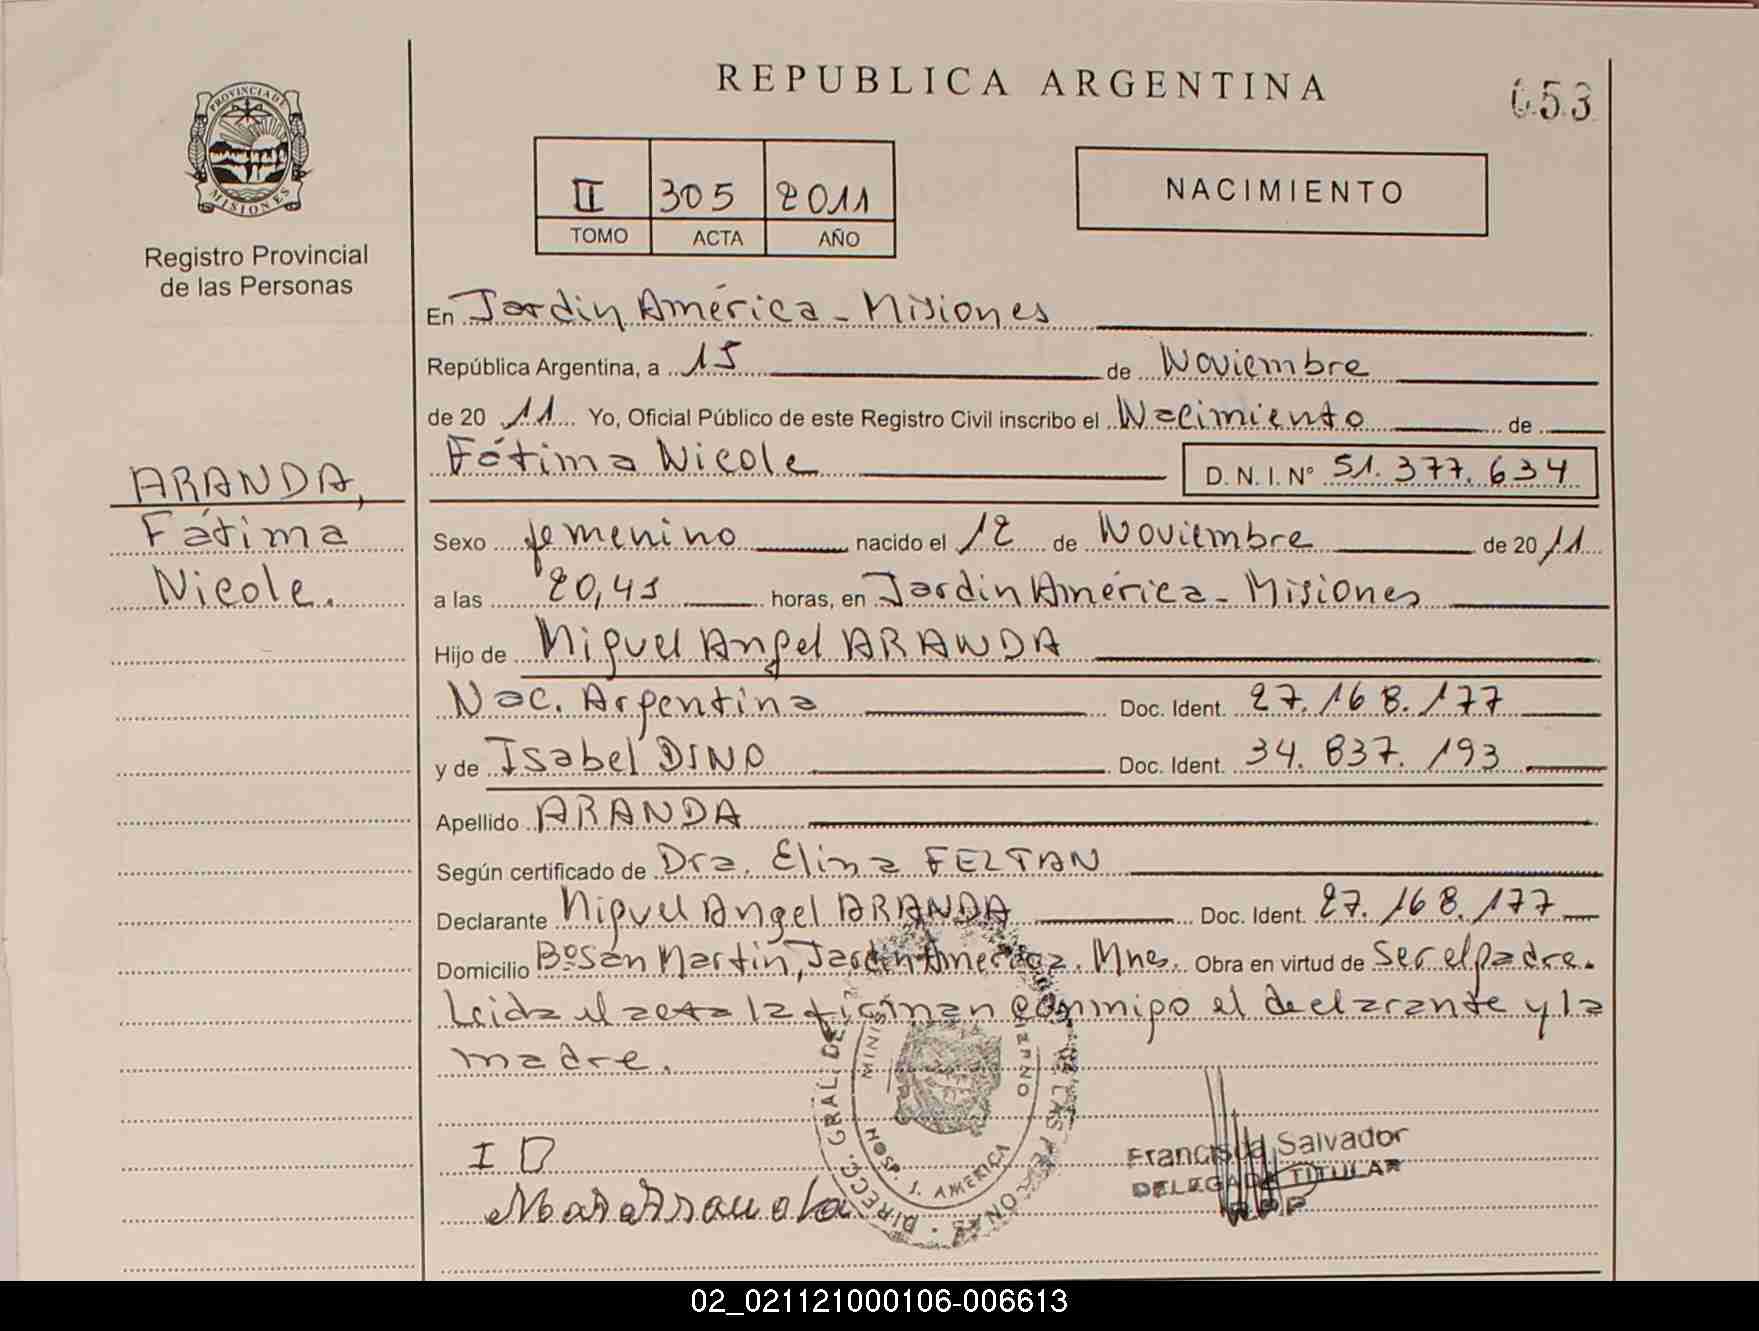 REPUBLICA ARGENTINA
053
PROVINCIA DE MISIONES
Registro Provincial
de las Personas
II 305 2011
TOMO ACTA AÑO
NACIMIENTO
En Jardin América - Misiones
República Argentina, a 15 de Noviembre
de 20 11 Yo, Oficial Público de este Registro Civil inscribo el Nacimiento de
Fátima Nicole D. N. I. Nº 51.377.634
ARANDA,
Fátima
Nicole.
Sexo femenino nacido el 12 de Noviembre de 20 11
a las 20,41 horas, en Jardin América - Misiones
Hijo de Miguel Angel ARANDA
Nac. Argentina Doc. Ident. 27.168.177
y de Isabel DINO Doc. Ident. 34.837.193
Apellido ARANDA
Según certificado de Dra. Elina FELTAN
Declarante Miguel Angel ARANDA Doc. Ident. 27.168.177
Domicilio Bº San Martin, Jardin America. Mnes. Obra en virtud de ser el padre.
Leida el acta la firman conmigo el declarante y la
madre.
I D
DIRECC. GRAL. DE LAS PERSONAS
J. AMERICA
Salvador
DELEGADA TITULAR
RPP
02_021121000106-006613